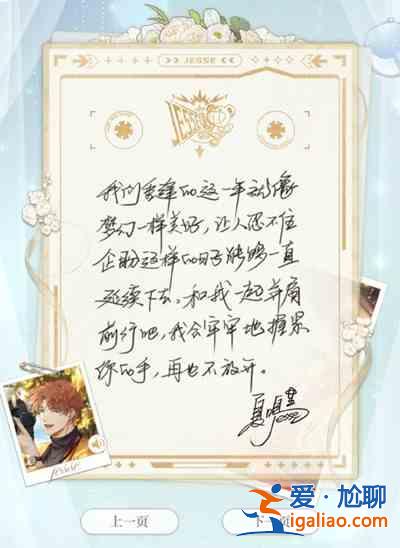 >> JESSE <<
JESSE
我们重逢的这一年就像
梦幻一样美好，让人忍不住
企盼这样的日子能够一直
延续下去。和我一起并肩
前行吧，我会牢牢地握紧
你的手，再也不放开。
夏鸣星
Jesse
JESSE
上一页
下一页
爱·尬聊
igaliao.com